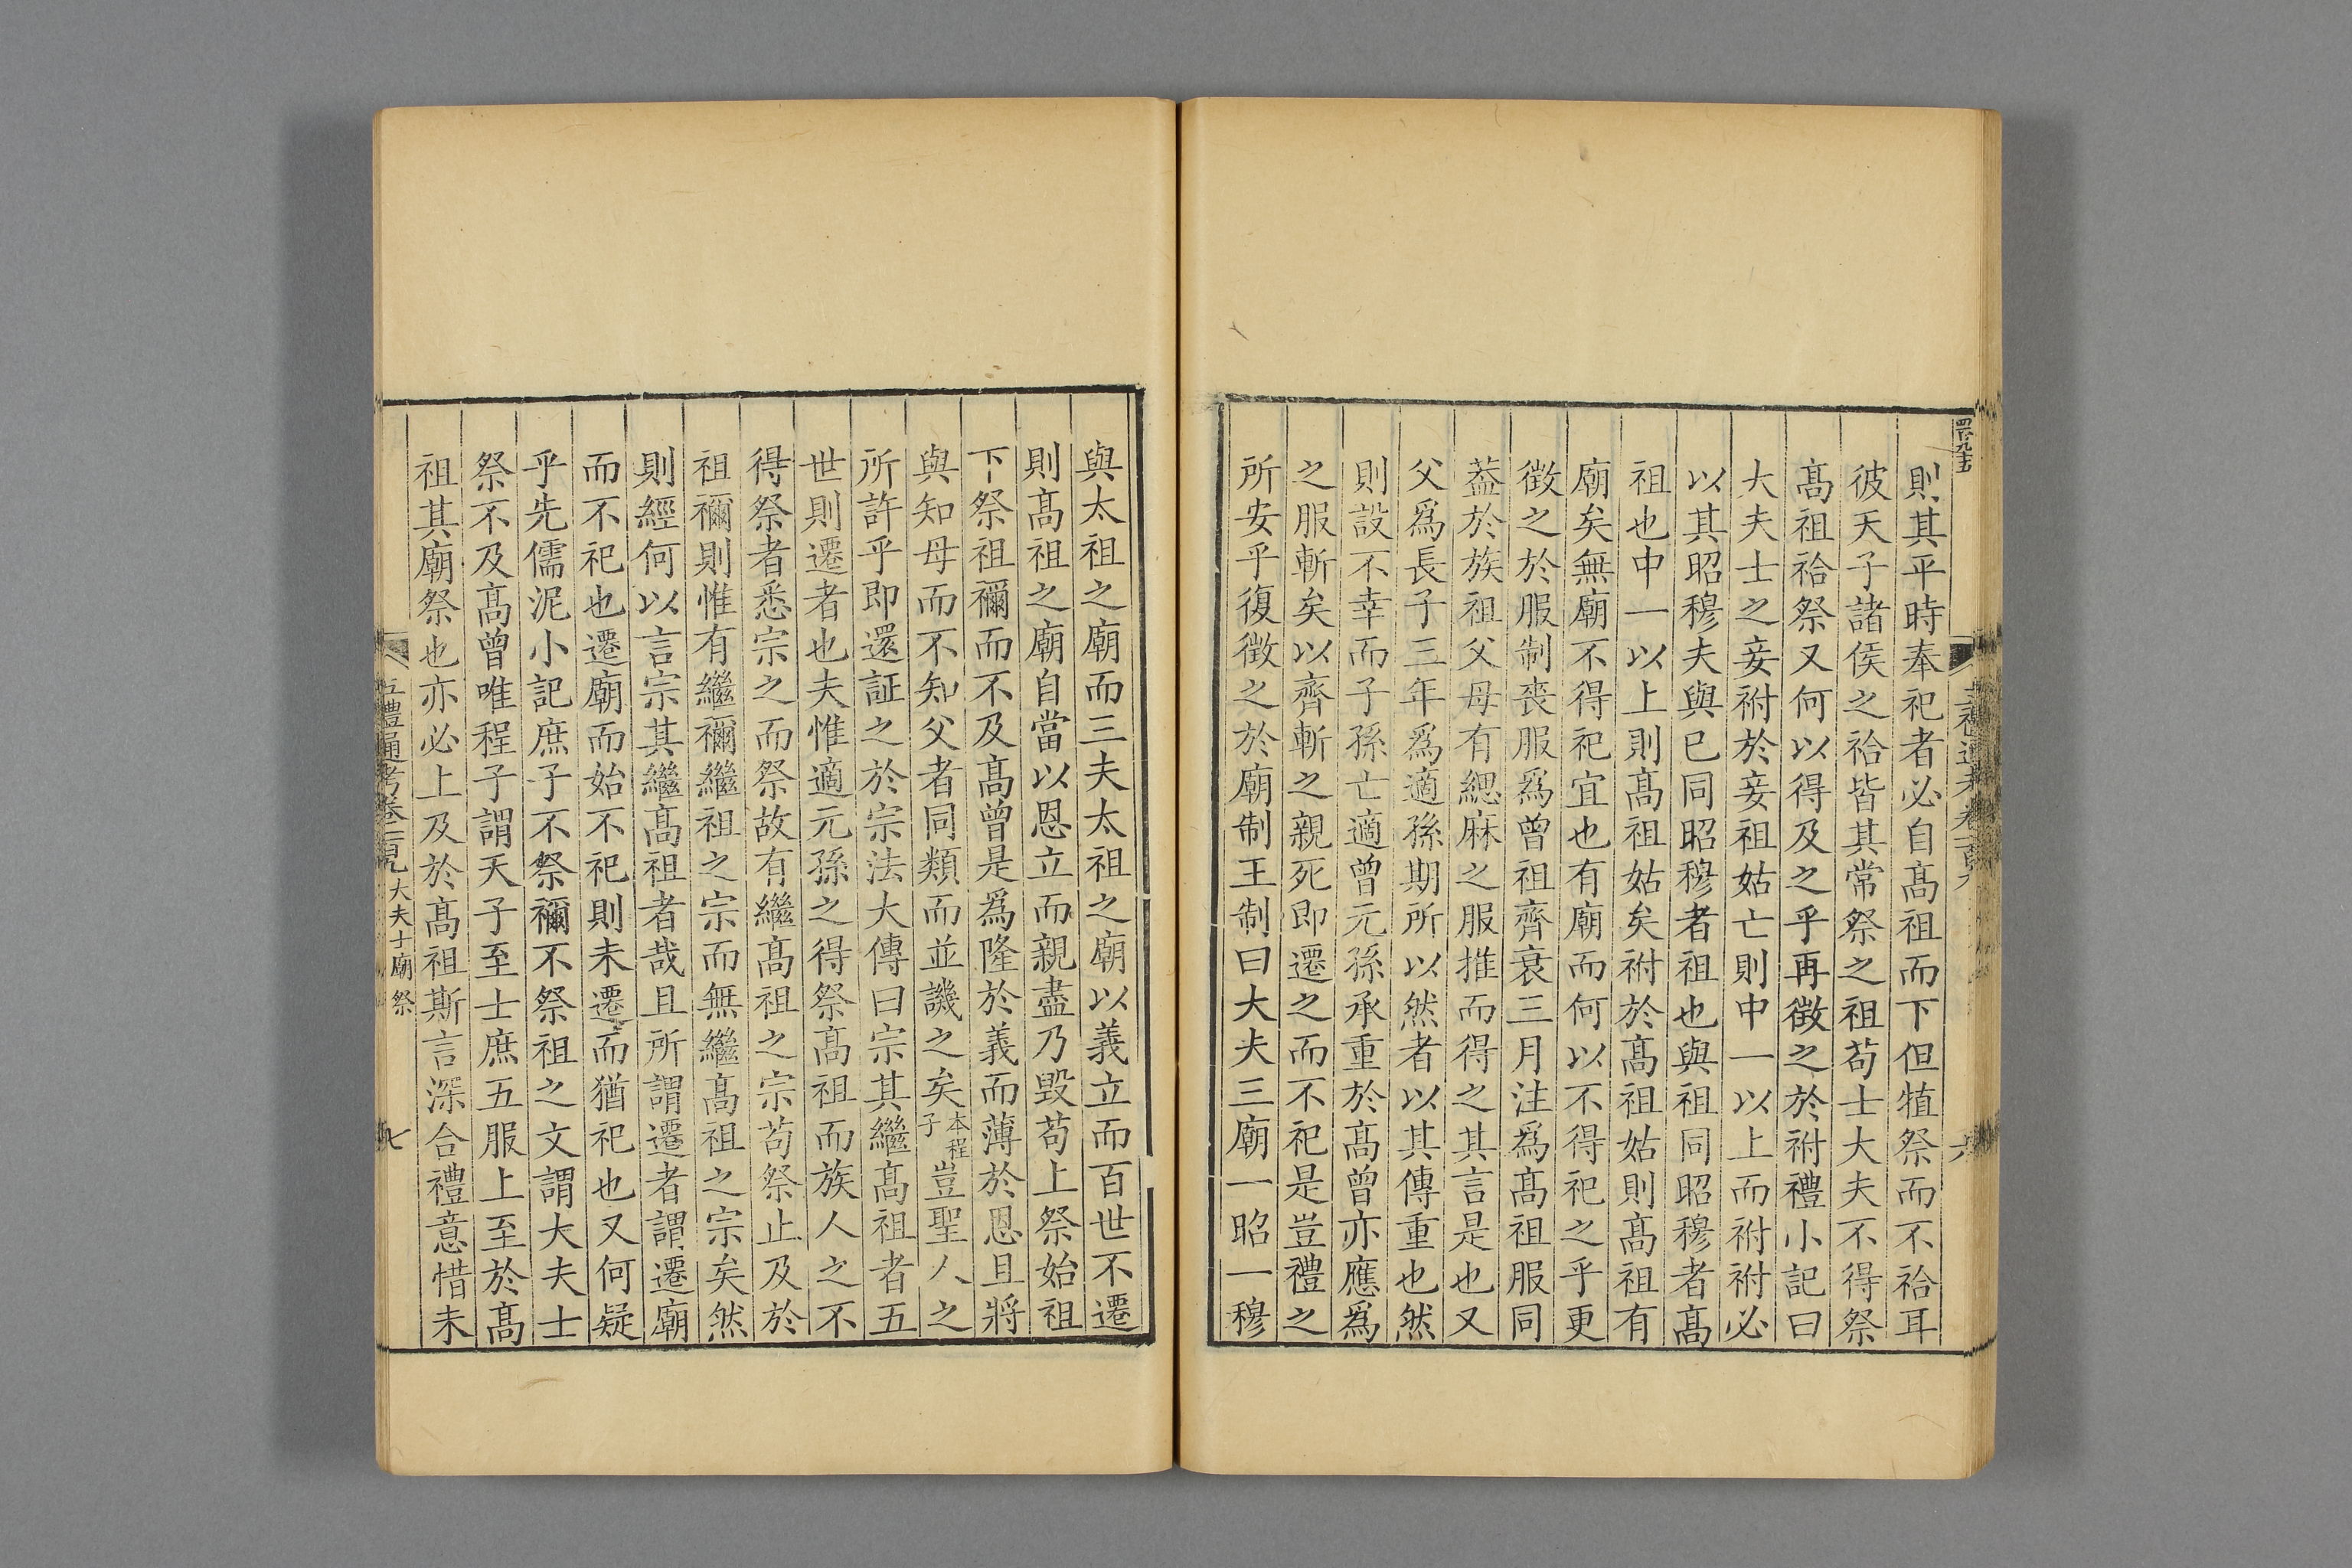 則其平時奉祀者必自高祖而下但犆祭而不祫耳
彼天子諸侯之祫皆其常祭之祖苟士大夫不得祭
高祖祫祭又何以得及之乎再徵之於祔禮小記曰
大夫士之妾祔於妾祖姑亡則中一以上而祔祔必
以其昭穆夫與已同昭穆者祖也與祖同昭穆者高
祖也中一以上則高祖姑矣祔於高祖姑則高祖有
廟矣無廟不得祀宜也有廟而何以不得祀之乎更
徵之於服制喪服爲曾祖齊衰三月注爲高祖服同
葢於族祖父母有緦麻之服推而得之其言是也又
父爲長子三年爲適孫期所以然者以其傳重也然
則設不幸而子孫亡適曾元孫承重於高曾亦應爲
之服斬矣以齊斬之親死即遷之而不祀是豈禮之
所安乎復徵之於廟制王制曰大夫三廟一昭一穆
與太祖之廟而三夫太祖之廟以義立而百世不遷
則高祖之廟自當以恩立而親盡乃毀苟上祭始祖
下祭祖禰而不及高曾是爲隆於義而薄於恩且將
與知母而不知父者同類而並譏之矣本程子豈聖人之
所許乎即還証之於宗法大傳曰宗其繼高祖者五
世則遷者也夫惟適元孫之得祭高祖而族人之不
得祭者悉宗之而祭故有繼高祖之宗苟祭止及於
祖禰則惟有繼禰繼祖之宗而無繼高祖之宗矣然
則經何以言宗其繼高祖者哉且所謂遷者謂遷廟
而不祀也遷廟而始不祀則未遷而猶祀也又何疑
乎先儒泥小記庶子不祭禰不祭祖之文謂大夫士
祭不及高曾唯程子謂天子至士庶五服上至於高
祖其廟祭也亦必上及於高祖斯言深合禮意惜未
五禮通考卷一百九 大夫士廟祭 七